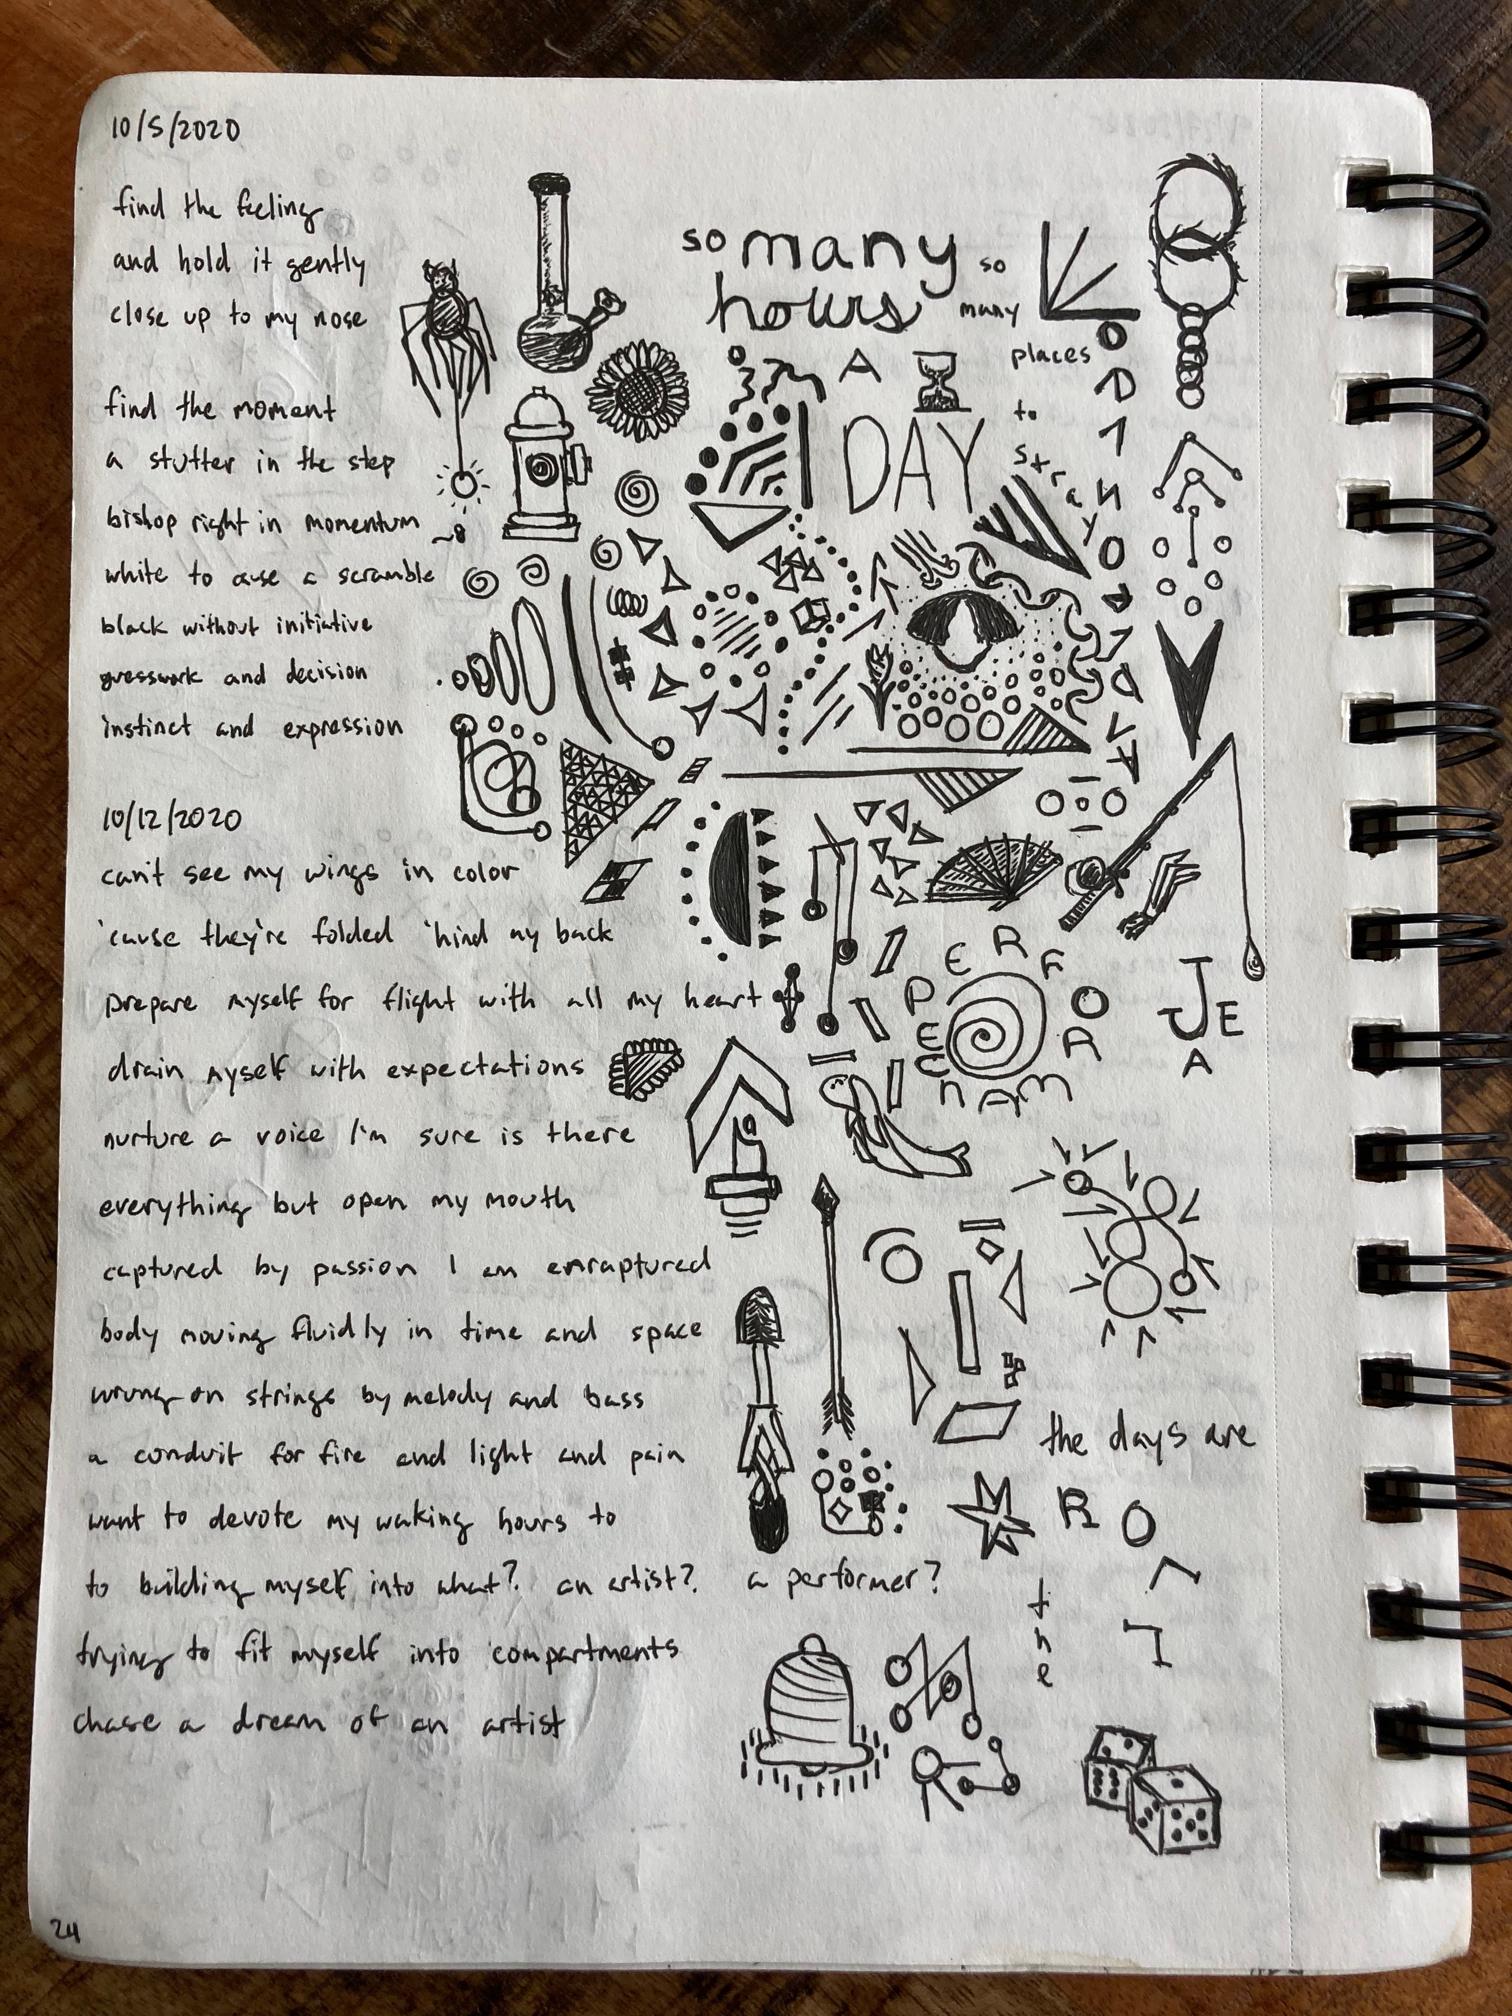 10/5/2020
find the feeling
and hold it gently
close up to my nose
find the moment
a stutter in the step
bishop right in momentum
white to cause a scramble
black without initiative
guesswork and decision
instinct and expression
10/12/2020
can't see my wings in color
'cause they're folded 'hind my back
prepare myself for flight with all my heart
drain myself with expectations
nurture a voice I'm sure is there
everything but open my mouth
captured by passion I am enraptured
body moving fluidly in time and space
wrung on strings by melody and bass
a conduit for fire and light and pain
want to devote my waking hours to
to building myself into what? an artist? a performer?
trying to fit myself into compartments
chase a dream of an artist
so many
hours
so
many
places
to
stray
A
DAY
PERFOR
MANCE
the days are
the
24